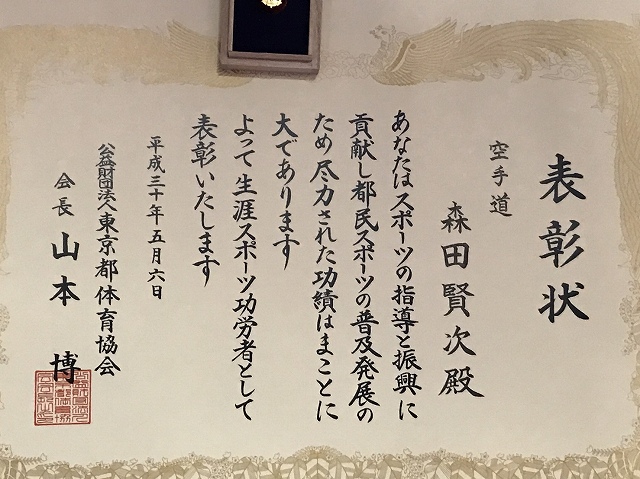 表彰状
空手道
森田賢次殿
あなたはスポーツの指導と振興に
貢献し都民スポーツの普及発展の
ため尽力された功績はまことに
大であります
よって生涯スポーツ功労者として
表彰いたします
平成三十年五月六日
公益財団法人東京都体育協会
会長 山本 博